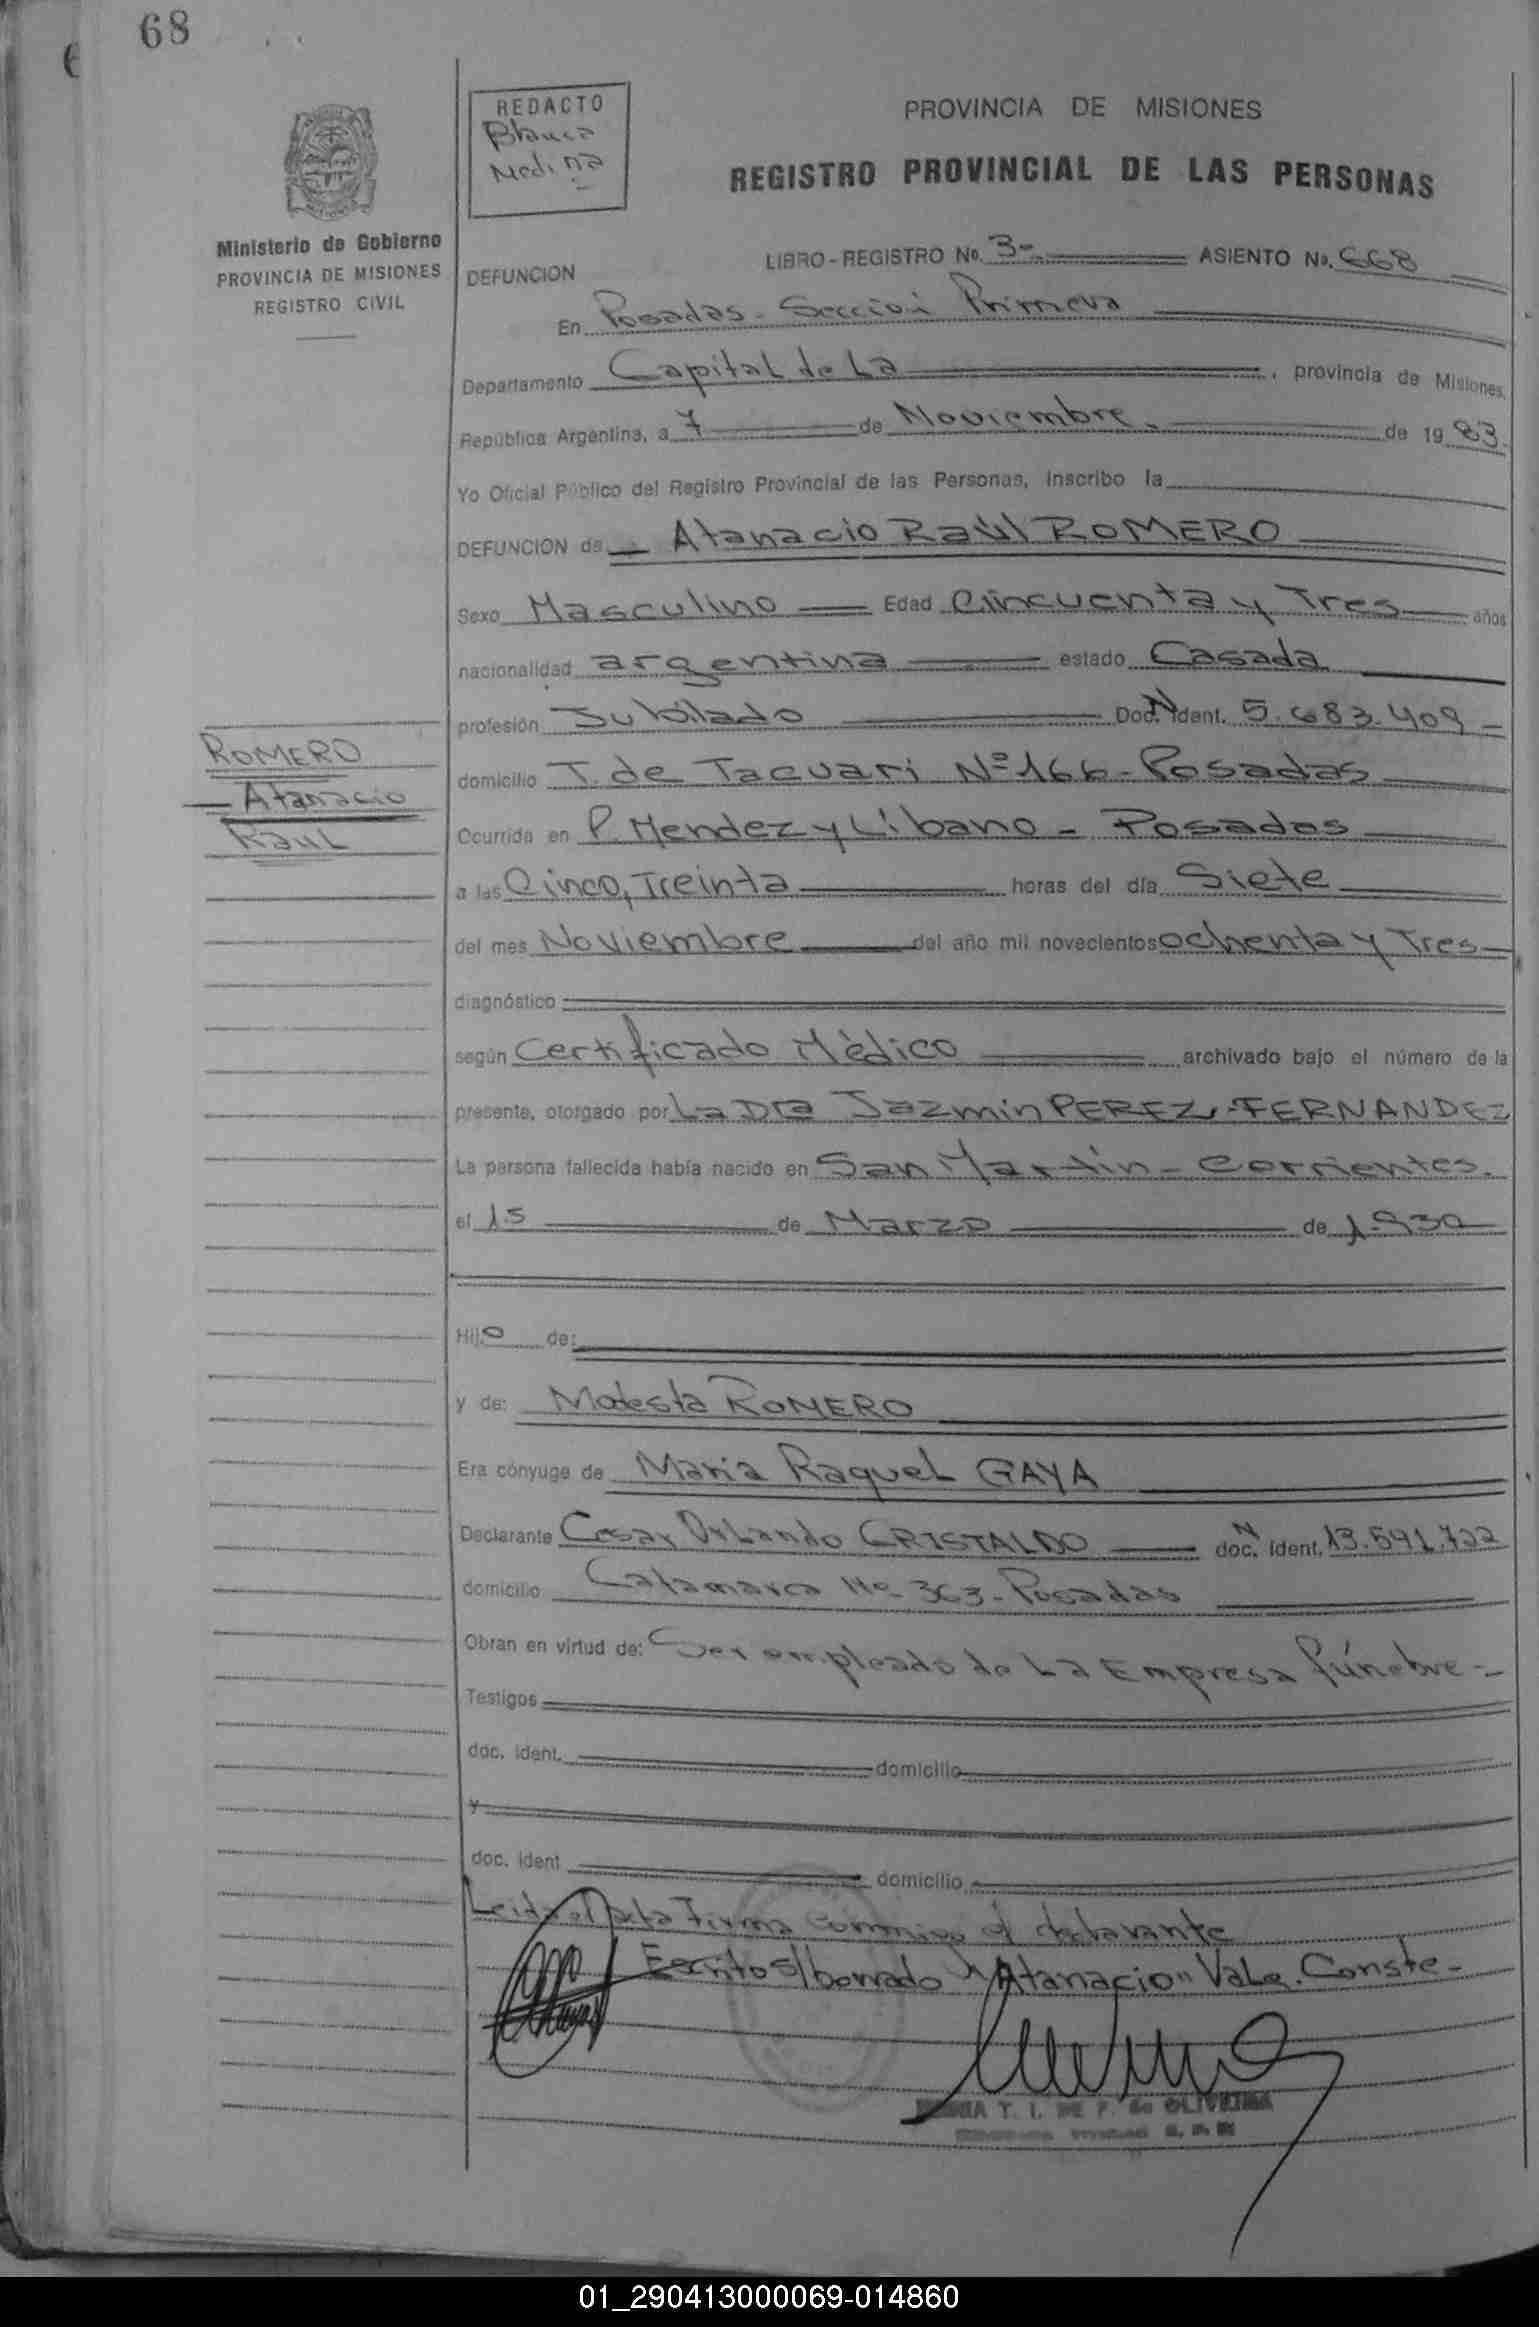 68
REDACTO
Blanca
Medina
Ministerio de Gobierno
PROVINCIA DE MISIONES
REGISTRO CIVIL
PROVINCIA DE MISIONES
REGISTRO PROVINCIAL DE LAS PERSONAS
LIBRO-REGISTRO No. 3- ASIENTO No. 668
DEFUNCION
En Posadas - Sección Primera
Departamento Capital de La , provincia de Misiones,
República Argentina, a 7 de Noviembre. de 1983.
Yo Oficial Público del Registro Provincial de las Personas, inscribo la
DEFUNCION de Atanacio Raúl ROMERO
Sexo Masculino Edad Cincuenta y Tres años
nacionalidad argentina estado Casada
profesión Jubilado Doc. N Ident. 5.683.409
ROMERO
Atanacio
Raul
domicilio T. de Tacuari Nº 166 - Posadas
Ocurrida en P. Mendez y Libano - Posadas
a las Cinco, Treinta horas del día Siete
del mes Noviembre del año mil novecientos ochenta y Tres
diagnóstico
según Certificado Mèdico archivado bajo el número de la
presente, otorgado por La DRa Jazmin PEREZ-FERNANDEZ
La persona fallecida había nacido en San Martín - Corrientes.
el 15 de Marzo de 1.930
Hijo de:
y de: Modesta ROMERO
Era cónyuge de Maria Raquel GAYA
Declarante Cesar Orlando CRISTALDO doc. N ident. 13.591.722
domicilio Catamarca Nº 363 - Posadas
Obran en virtud de: Ser empleado de La Empresa fúnebre -
Testigos
doc. ident. domicilio
y
doc. ident domicilio
Leida el acta Firma conmigo el declarante
Escrito s/borrado "Atanacio" Vale. Conste -
T. I. DE F. de OLIVEIRA
01_290413000069-014860